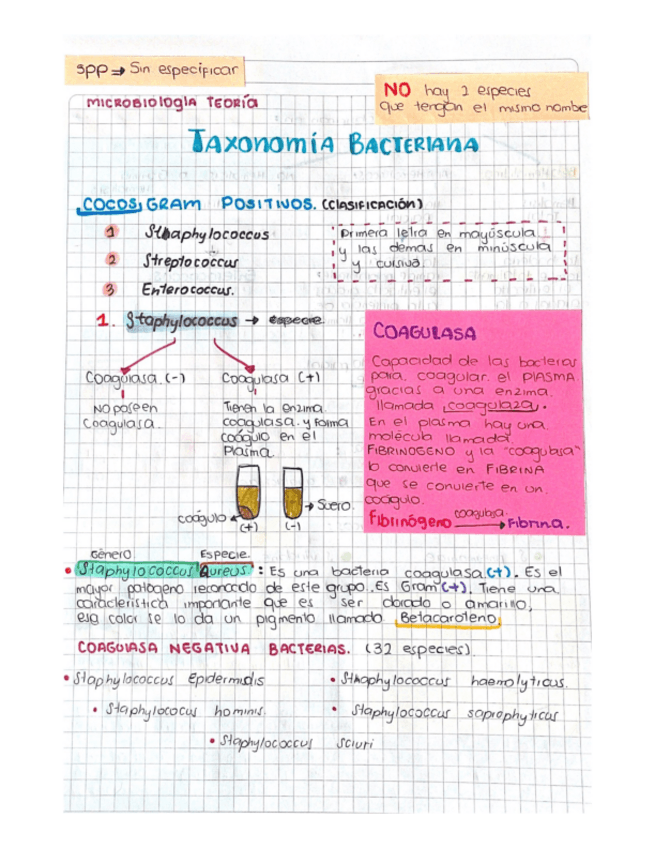 spp → Sin especificar
NO hay 2 especies
que tengan el mismo nombe
MICROBIOLOGIA TEORÍA
TAXONOMÍA BACTERIANA
COCOS GRAM POSITIVOS. (CLASIFICACIÓN)
1 Sthaphylococcus
2 Streptococcus
3 Enterococcus.
Primera letra en mayúscula
y las demas en minúscula
y cursiva.
1. Staphylococcus → especie
Coagulasa (-)
No poseen
Coagulasa.
Coagulasa (+)
Tienen la enzima
coagulasa y forma
coágulo en el
Plasma.
coágulo
(+)
(-)
→ Suero.
COAGULASA
Capacidad de las bacterias
para coagular el PLASMA
gracias a una enzima
llamada coagulaza.
En el plasma hay una
molécula llamada
FIBRINOGENO y la "coagulasa"
lo convierte en FIBRINA
que se convierte en un
coágulo.
coagulasa
Fibrinógeno → Fibrina.
Género Especie.
• Staphylococcus Aureus: Es una bacteria coagulasa (+). Es el
mayor patogeno reconocido de este grupo. Es Gram (+). Tiene una
característica importante que es ser dorado o amarillo,
ese color se lo da un pigmento llamado Betacaroteno.
COAGULASA NEGATIVA BACTERIAS. (32 especies)
• Staphylococcus Epidermidis
• Sthaphylococcus haemolyticus.
• Staphylococus hominis.
• Staphylococcus saprophyticus
• Staphylococcus sciuri